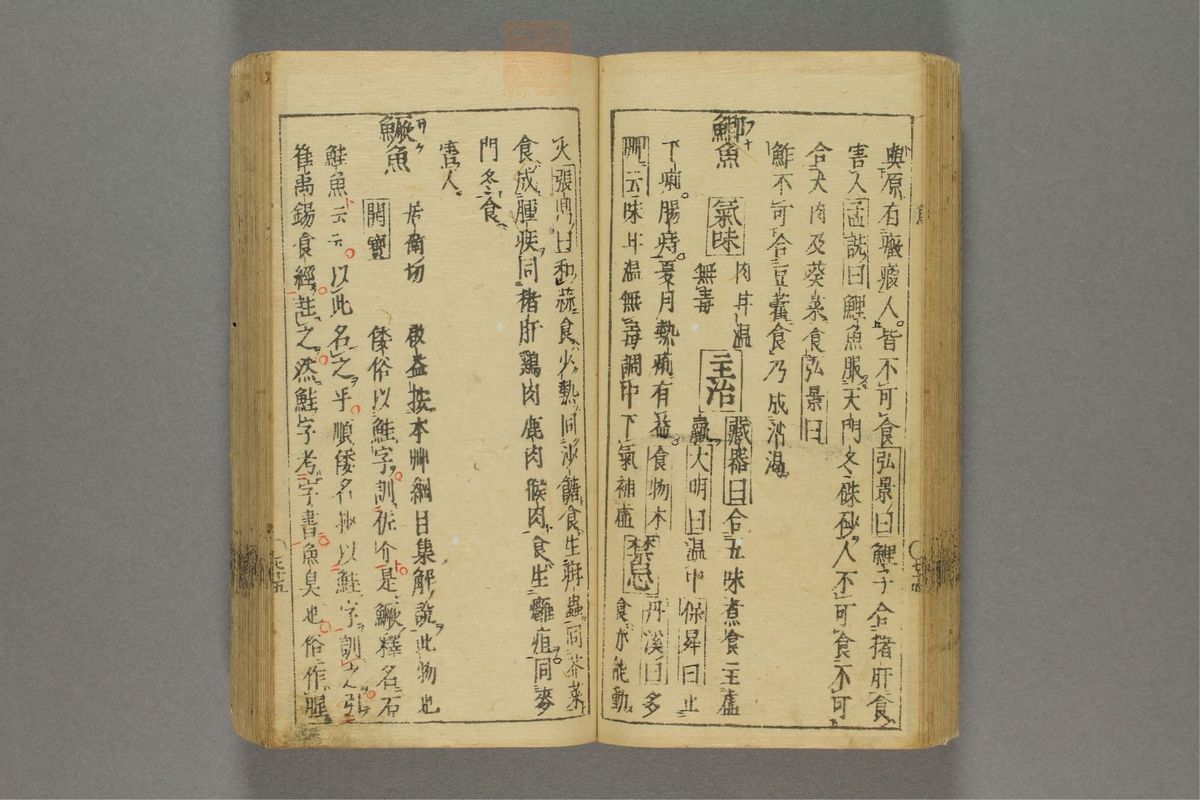 奧原有癥瘕人皆不可食弘景曰鯉子合猪肝食
害人孟詵曰鯉魚服天門冬硃砂人不可食不可
合犬肉及葵菜食弘景曰
鮓不可合豆藿食乃成消渇
鯽魚 氣味 肉甘温無毒 主治 藏器曰合五味煮食主虛
羸大明曰温中保昇曰止
下痢腸痔夏月熱痢有益食物本丹溪曰多
艸云味甘温無毒調中下氣補虛 禁忌 食亦能動
火張鼎曰和蒜食少熱同沙糖食生疳蟲同芥菜
食成腫疾同猪肝鷄肉鹿肉猴肉食生癰疽同麥
門冬食
害人
鱖魚 居衛切 開寶 啟益按本艸綱目集解説此物也
倭俗以鮭字訓佐介是鱖釋名石
鮭魚云云以此名之乎順倭名抄以鮭字訓之引
崔禹錫食經註之然鮭字考字書魚臭也俗作腥